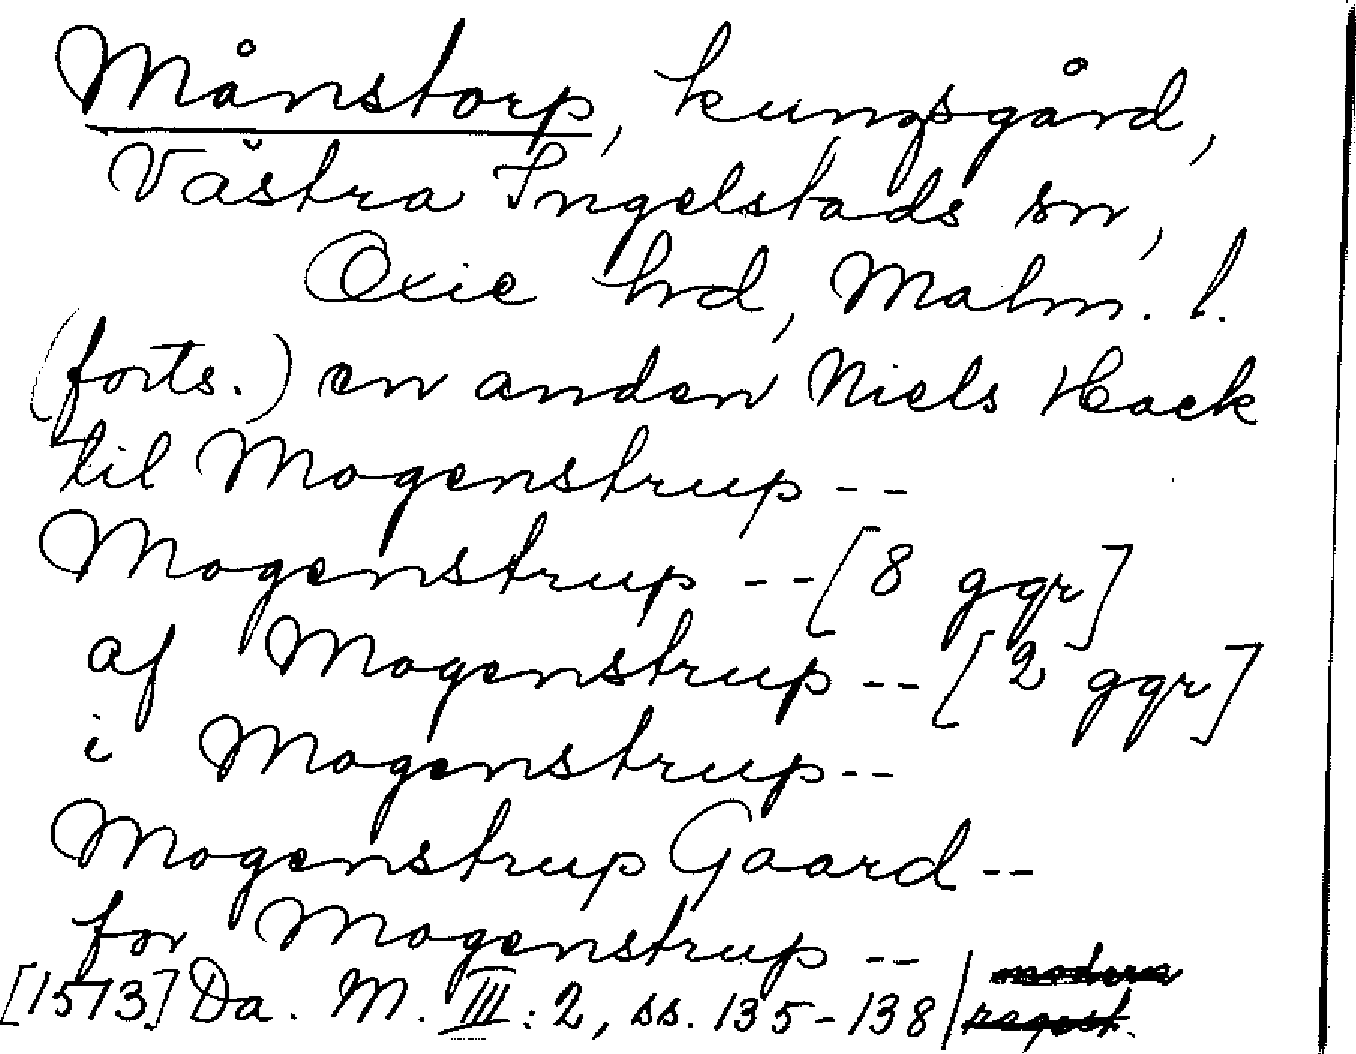 Månstorp, kungsgård,
Västra Ingelstads sn,
Oxie hd, Malm. l.
(forts.) en anden Niels Hack
til Mogenstrup --
Mogenstrup -- [8 ggr]
af Mogenstrup -- [2 ggr]
i Mogenstrup --
Mogenstrup Gaard --
for Mogenstrup --
[1573] Da. M. III: 2, ss. 135-138 | modern
regest.